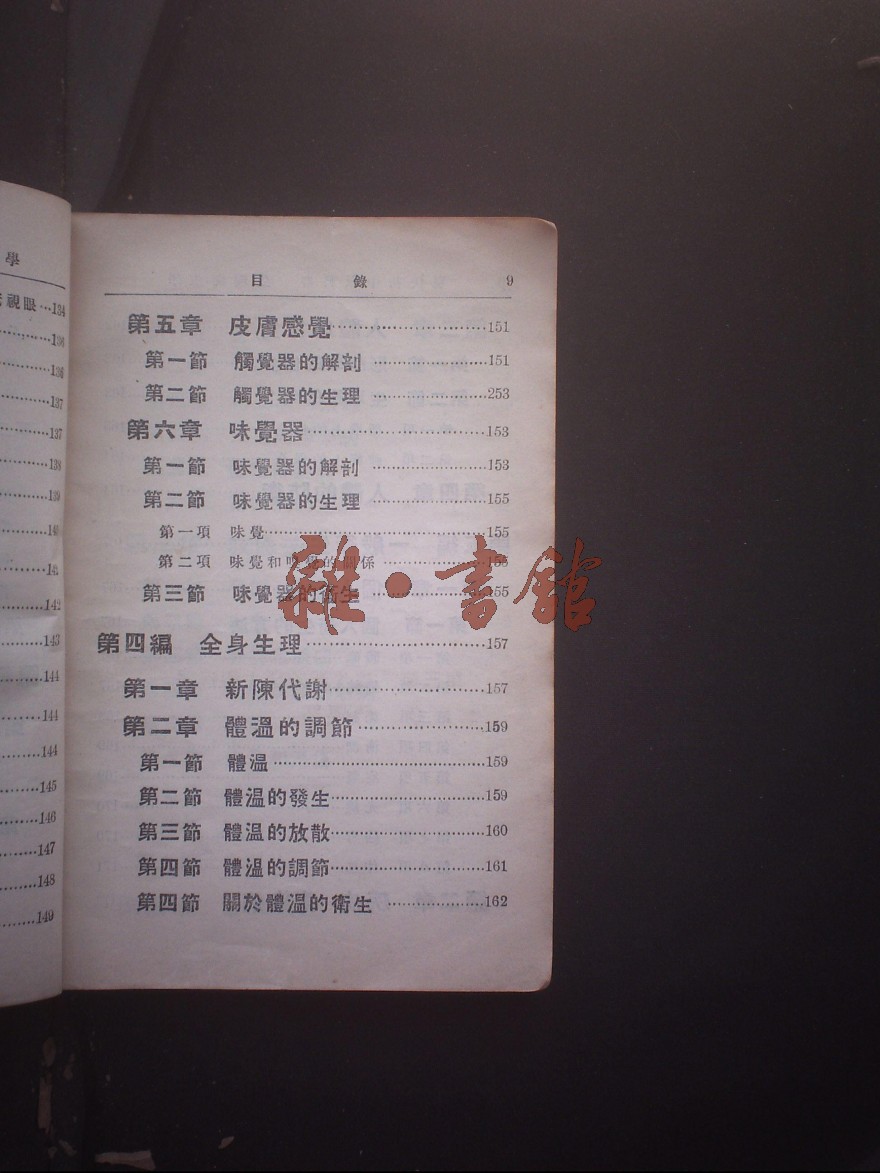 學
視眼…134
136
136
137
137
138
139
140
141
142
143
144
144
144
145
146
147
148
149
目 錄 9
第五章 皮膚感覺……151
第一節 觸覺器的解剖……151
第二節 觸覺器的生理……253
第六章 味覺器……153
第一節 味覺器的解剖……153
第二節 味覺器的生理……155
第一項 味覺……155
第二項 味覺和嗅覺的關係……155
第三節 味覺器的衛生……155
第四編 全身生理……157
第一章 新陳代謝……157
第二章 體溫的調節……159
第一節 體溫……159
第二節 體溫的發生……159
第三節 體溫的放散……160
第四節 體溫的調節……161
第四節 關於體溫的衛生……162
雜·書館